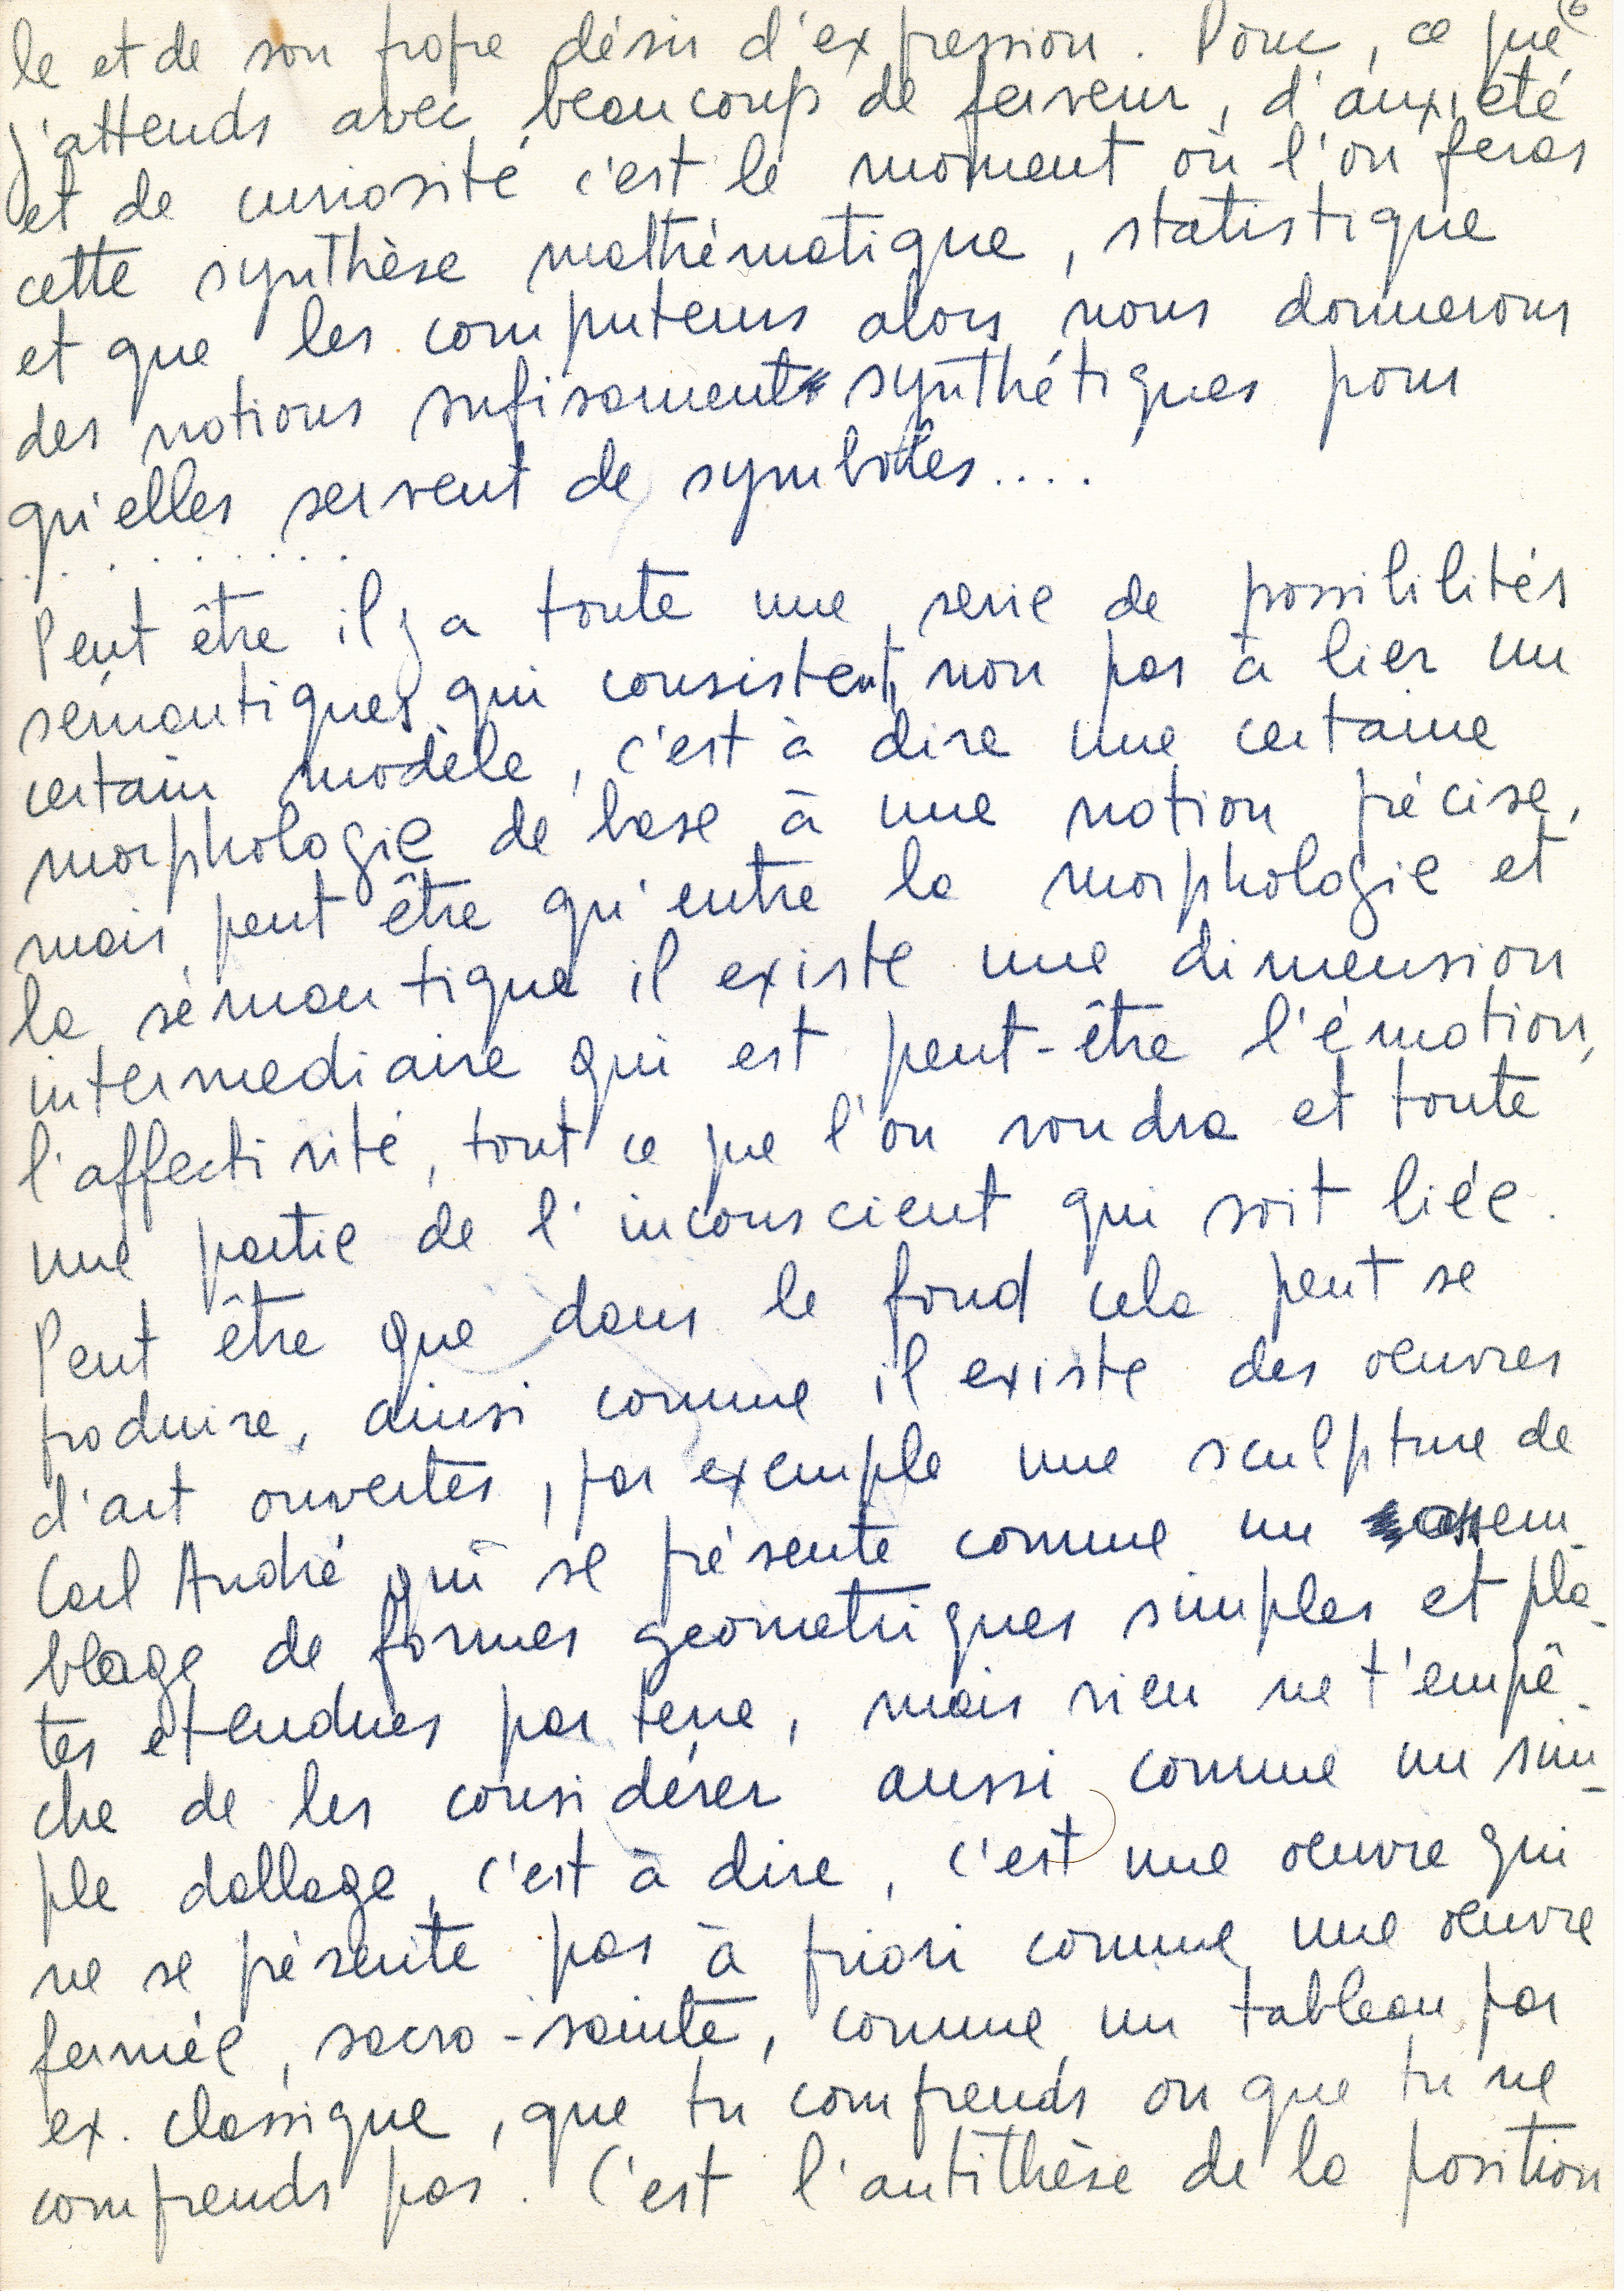 6
le et de son propre désir d'expression. Donc, ce que
j'attends avec beaucoup de ferveur, d'anxiété
et de curiosité c'est le moment où l'on feras
cette synthèse mathématique, statistique
et que les computeurs alors nous donnerons
des notions sufisament synthétiques pour
qu'elles servent de symboles....
..........
Peut être il y a toute une serie de possibilités
sémantiques qui consistent, non pas à lier un
certain modèle, c'est à dire une certaine
morphologie de base à une notion précise,
mais peut être qu'entre la morphologie et
la sémantique il existe une dimension
intermediaire qui est peut-être l'émotion,
l'affectivité, tout ce que l'on voudra et toute
une partie de l'inconscient qui soit liée.
Peut être que dans le fond cela peut se
produire, ainsi comme il existe des oeuvres
d'art ouvertes, par exemple une sculpture de
Carl André qui se présente comme un assem-
blage de formes geometriques simples et pla-
tes etendues par terre, mais rien ne t'empê-
che de les considérer aussi comme un sim-
ple dallage, c'est à dire, c'est une oeuvre qui
ne se présente pas à priori comme une oeuvre
fermée, sacro-sainte, comme un tableau par
ex. classique, que tu comprends ou que tu ne
comprends pas. C'est l'antithèse de la position